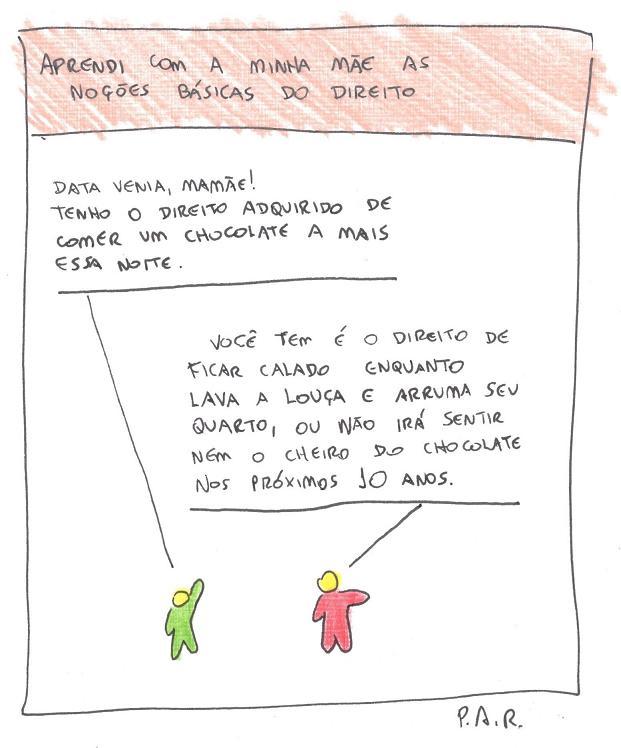 APRENDI COM A MINHA MÃE AS
NOÇÕES BÁSICAS DO DIREITO
DATA VENIA, MAMÃE!
TENHO O DIREITO ADQUIRIDO DE
COMER UM CHOCOLATE A MAIS
ESSA NOITE.
VOCÊ TEM É O DIREITO DE
FICAR CALADO ENQUANTO
LAVA A LOUÇA E ARRUMA SEU
QUARTO, OU NÃO IRÁ SENTIR
NEM O CHEIRO DO CHOCOLATE
NOS PRÓXIMOS 10 ANOS.
P.A.R.